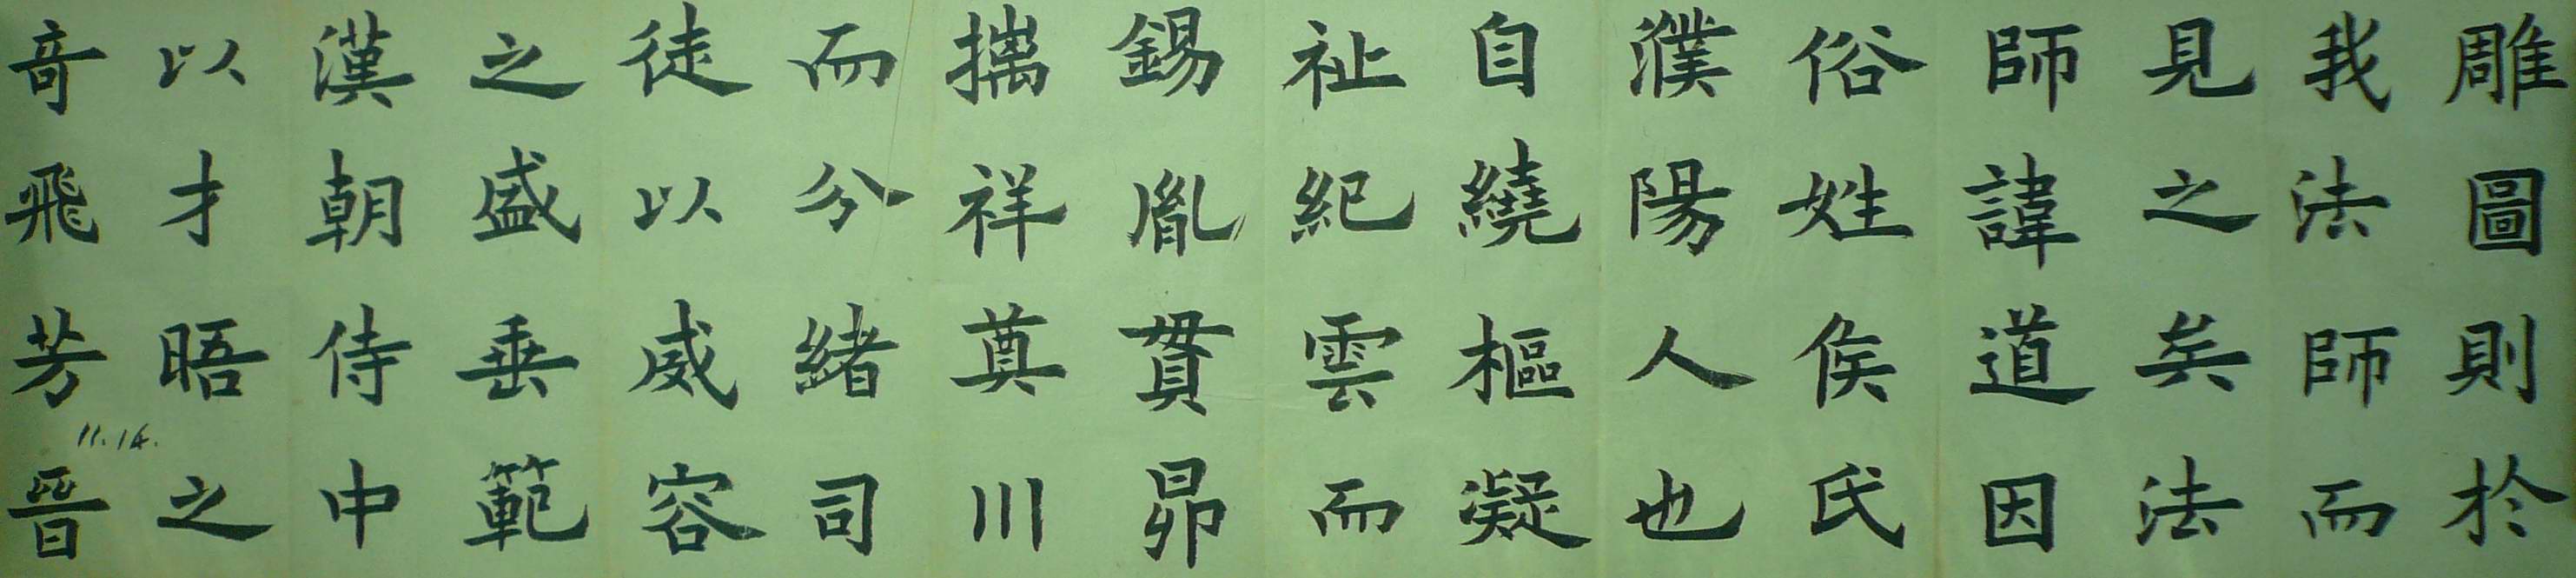 雕圖則於
我法師而
見之矣法
師諱道因
俗姓侯氏
濮陽人也
自繞樞凝
祉紀雲而
錫胤貫昴
摛祥奠川
而分緒司
徒以威容
之盛垂範
漢朝侍中
以才晤之
奇飛芳晉
11.14.